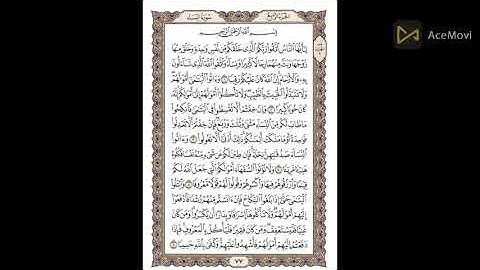 AceMovi
الجزء الرابع
سورة النساء
بِسْمِ ٱللَّهِ ٱلرَّحْمَٰنِ ٱلرَّحِيمِ
يَٰٓأَيُّهَا ٱلنَّاسُ ٱتَّقُوا۟ رَبَّكُمُ ٱلَّذِى خَلَقَكُم مِّن نَّفْسٍ وَٰحِدَةٍ وَخَلَقَ مِنْهَا
زَوْجَهَا وَبَثَّ مِنْهُمَا رِجَالًا كَثِيرًا وَنِسَآءً وَٱتَّقُوا۟ ٱللَّهَ ٱلَّذِى تَسَآءَلُونَ
بِهِۦ وَٱلْأَرْحَامَ إِنَّ ٱللَّهَ كَانَ عَلَيْكُمْ رَقِيبًا ١ وَءَاتُوا۟ ٱلْيَتَٰمَىٰٓ أَمْوَٰلَهُمْ
وَلَا تَتَبَدَّلُوا۟ ٱلْخَبِيثَ بِٱلطَّيِّبِ وَلَا تَأْكُلُوٓا۟ أَمْوَٰلَهُمْ إِلَىٰٓ أَمْوَٰلِكُمْ إِنَّهُۥ
كَانَ حُوبًا كَبِيرًا ٢ وَإِنْ خِفْتُمْ أَلَّا تُقْسِطُوا۟ فِى ٱلْيَتَٰمَىٰ فَٱنكِحُوا۟
مَا طَابَ لَكُم مِّنَ ٱلنِّسَآءِ مَثْنَىٰ وَثُلَٰثَ وَرُبَٰعَ فَإِنْ خِفْتُمْ أَلَّا تَعْدِلُوا۟
فَوَٰحِدَةً أَوْ مَا مَلَكَتْ أَيْمَٰنُكُمْ ذَٰلِكَ أَدْنَىٰٓ أَلَّا تَعُولُوا۟ ٣ وَءَاتُوا۟
ٱلنِّسَآءَ صَدُقَٰتِهِنَّ نِحْلَةً فَإِن طِبْنَ لَكُمْ عَن شَىْءٍ مِّنْهُ نَفْسًا فَكُلُوهُ
هَنِيٓـًٔا مَّرِيٓـًٔا ٤ وَلَا تُؤْتُوا۟ ٱلسُّفَهَآءَ أَمْوَٰلَكُمُ ٱلَّتِى جَعَلَ ٱللَّهُ لَكُمْ
قِيَٰمًا وَٱرْزُقُوهُمْ فِيهَا وَٱكْسُوهُمْ وَقُولُوا۟ لَهُمْ قَوْلًا مَّعْرُوفًا ٥ وَٱبْتَلُوا۟
ٱلْيَتَٰمَىٰ حَتَّىٰٓ إِذَا بَلَغُوا۟ ٱلنِّكَاحَ فَإِنْ ءَانَسْتُم مِّنْهُمْ رُشْدًا فَٱدْفَعُوٓا۟
إِلَيْهِمْ أَمْوَٰلَهُمْ وَلَا تَأْكُلُوهَآ إِسْرَافًا وَبِدَارًا أَن يَكْبَرُوا۟ وَمَن كَانَ
غَنِيًّا فَلْيَسْتَعْفِفْ وَمَن كَانَ فَقِيرًا فَلْيَأْكُلْ بِٱلْمَعْرُوفِ فَإِذَا
دَفَعْتُمْ إِلَيْهِمْ أَمْوَٰلَهُمْ فَأَشْهِدُوا۟ عَلَيْهِمْ وَكَفَىٰ بِٱللَّهِ حَسِيبًا ٦
٧٧